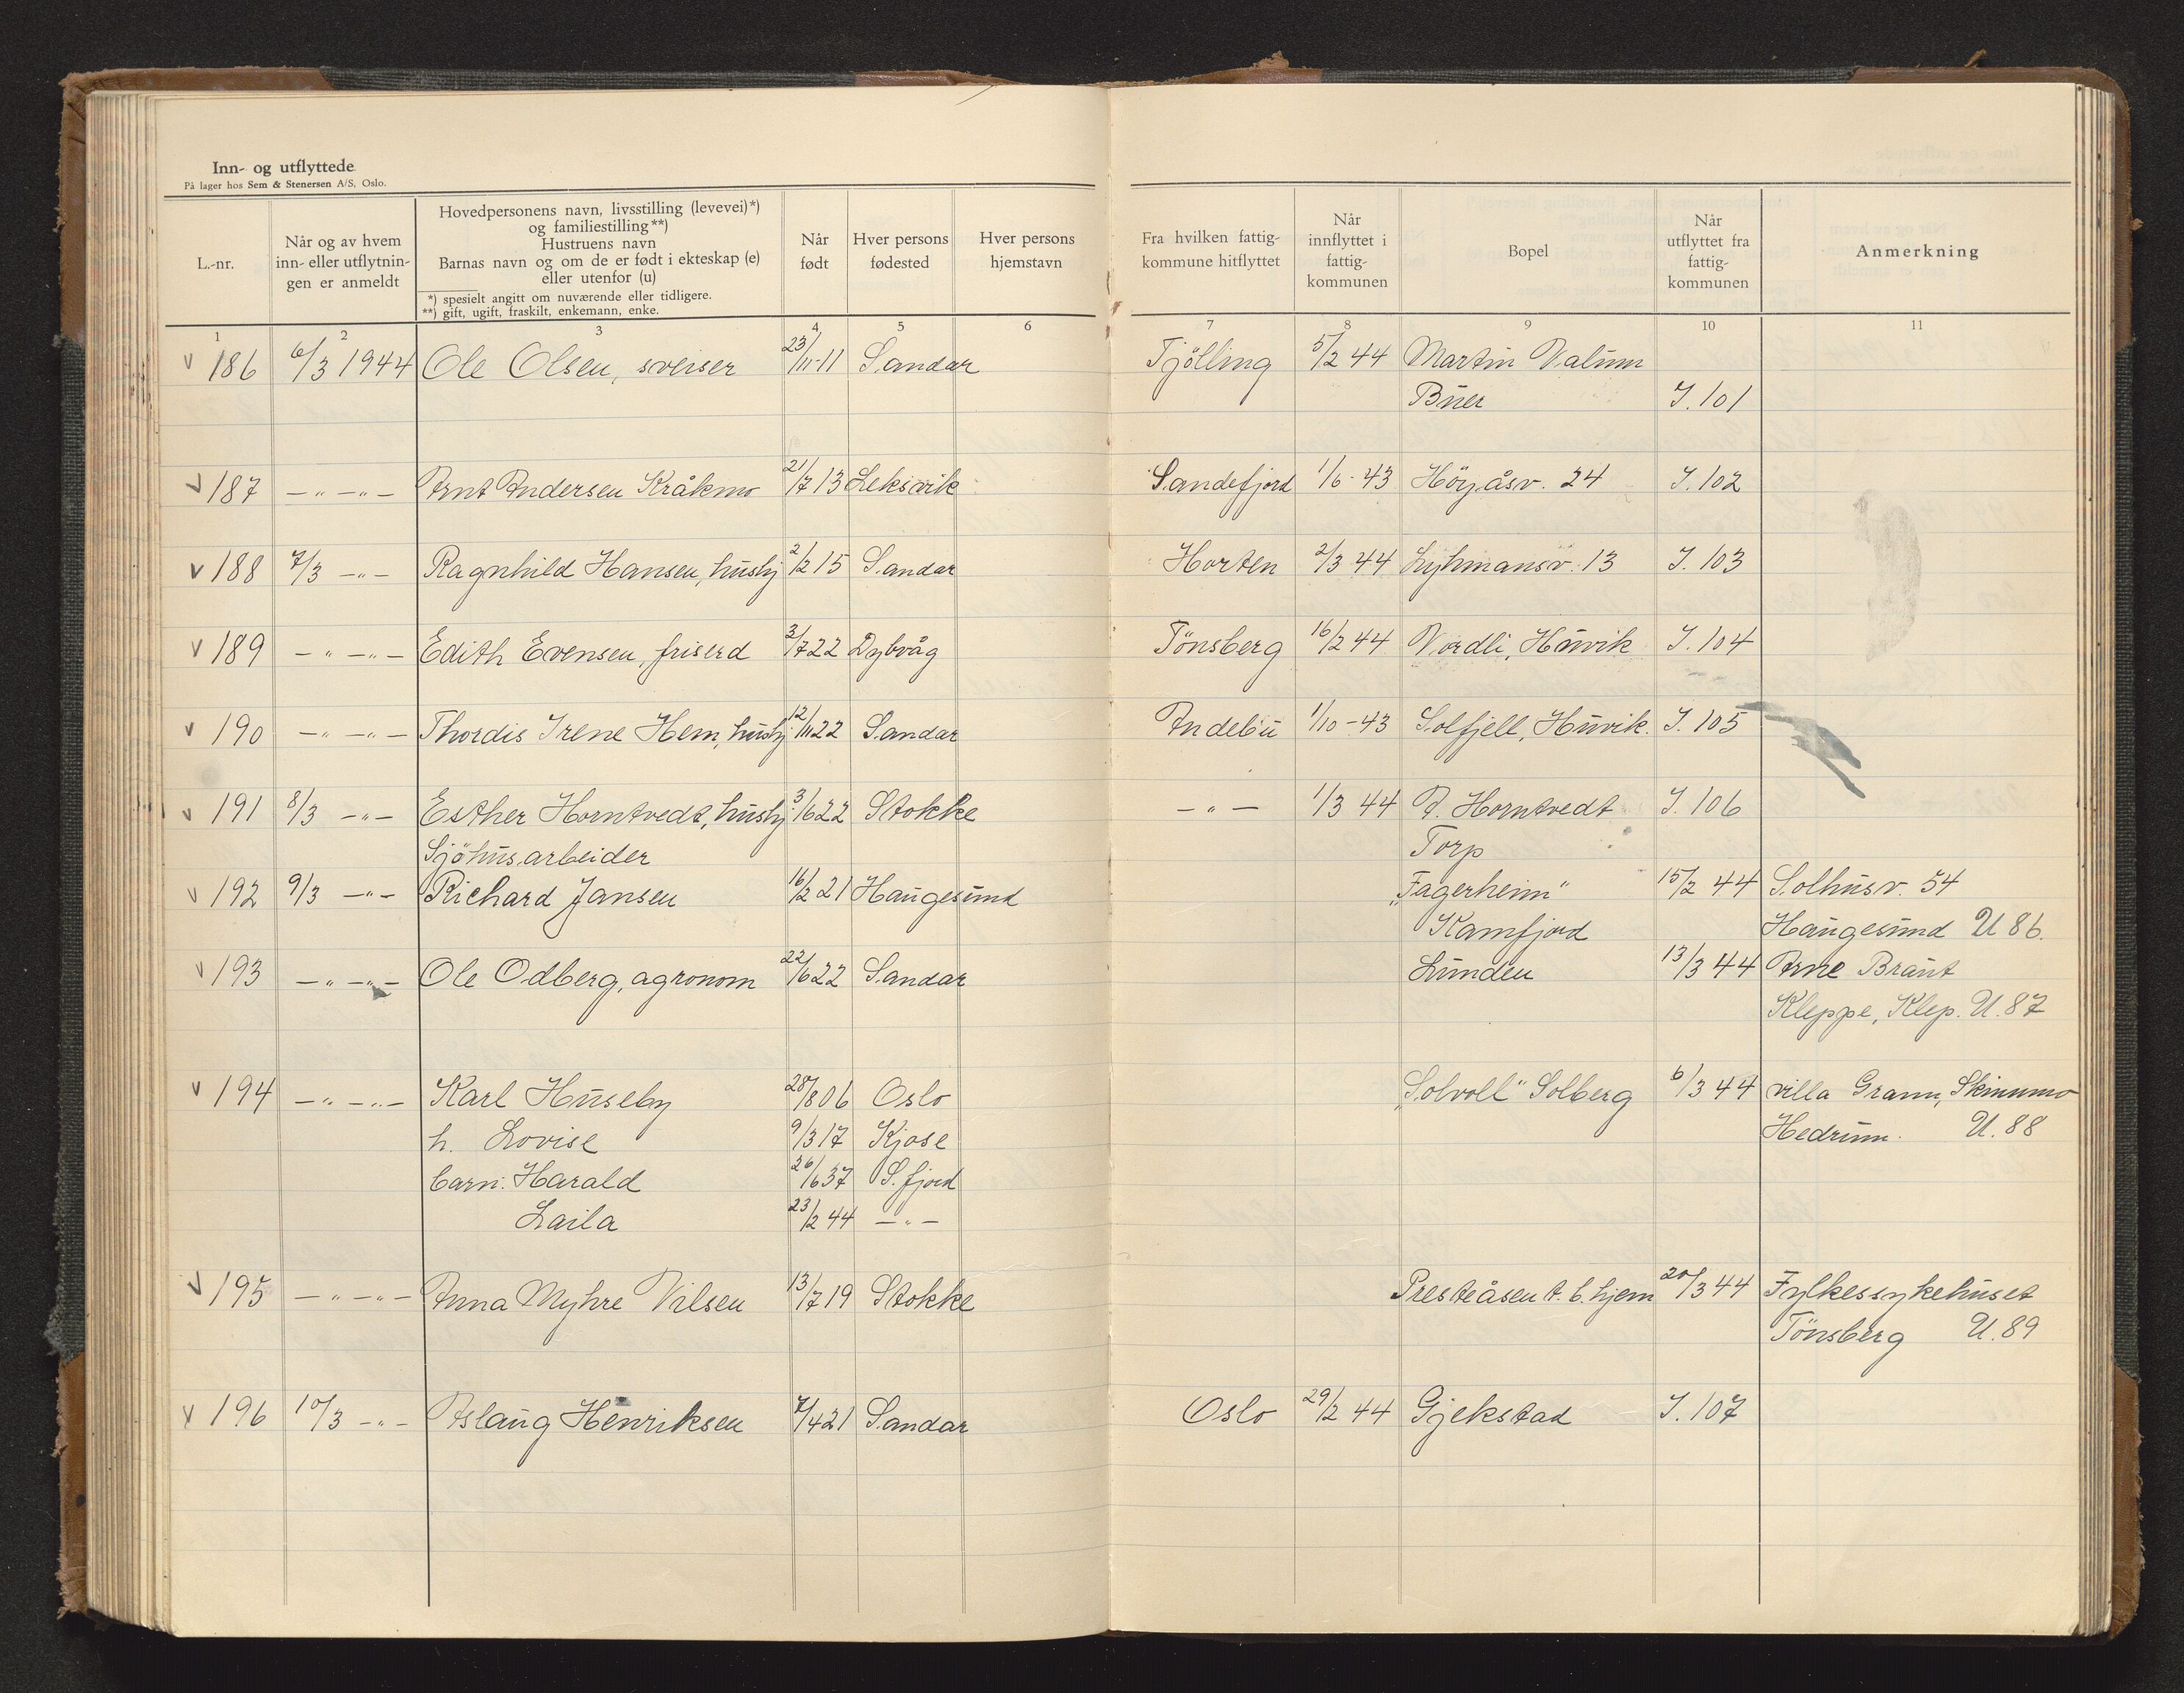 Inn- og utflyttede
På lager hos Sem & Stenersen A/S, Oslo.
L.-nr.
Når og av hvem
inn- eller utflytnin-
gen er anmeldt
Hovedpersonens navn, livsstilling (levevei)*)
og familiestilling**)
Hustruens navn
Barnas navn og om de er født i ekteskap (e)
eller utenfor (u)
*) spesielt angitt om nuværende eller tidligere.
**) gift, ugift, fraskilt, enkemann, enke.
Når
født
Hver persons
fødested
Hver persons
hjemstavn
Fra hvilken fattig-
kommune hitflyttet
Når
innflyttet i
fattig-
kommunen
Bopel
Når
utflyttet fra
fattig-
kommunen
Anmerkning
1 2 3 4 5 6 7 8 9 10 11
v 186 6/3 1944 Ole Olsen, sveiser 23/11-11 Sandar Tjölling 5/2 44 Martin Valum
Buer I. 101
v 187 -"-"- Arnt Andersen Kråkmo 21/7 13 Leksvik Sandefjord 1/6-43 Höyåsv. 24 I. 102
v 188 7/3 -"- Ragnhild Hansen, hushj 2/2 15 Sandar Horten 2/3 44 Lyhmansv. 13 I. 103
v 189 -"-"- Edith Evensen, friserd 3/7 22 Dybvåg Tönsberg 16/2 44 Vårdli, Huvik I. 104
v 190 -"-"- Thordis Irene Hem, hushj 12/11 22 Sandar Andebu 1/10-43 Solfjell, Huvik. I. 105
v 191 8/3 -"- Esther Horntvedt, hushj 3/6 22 Stokke -"- 1/3 44 A. Horntvedt I. 106
Sjöhusarbeider Torp
v 192 9/3 -"- Richard Jansen 16/2 21 Haugesund „Fagerheim" 15/2 44 Solhusv. 54
Kamfjord Haugesund U 86.
v 193 -"-"- Ole Odberg, agronom 22/6 22 Sandar Lunden 13/3 44 Arne Braut
Kleppe, Klep. U. 87
v 194 -"-"- Karl Huseby 28/8 06 Oslo „Solvoll" Solberg 6/3 44 villa Gram, Skinnmo
h. Lovise 9/3 17 Kjose Hedrum. U. 88
barn: Harald 26/6 37 S.fjord
Laila 23/2 44 -"-
v 195 -"-"- Anna Myhre Nilsen 13/7 19 Stokke Presteåsen t. b. hjem 20/3 44 Fylkessykehuset
Tönsberg U. 89
v 196 10/3 -"- Aslaug Henriksen 7/4 21 Sandar Oslo 29/2 44 Gjekstad I. 107